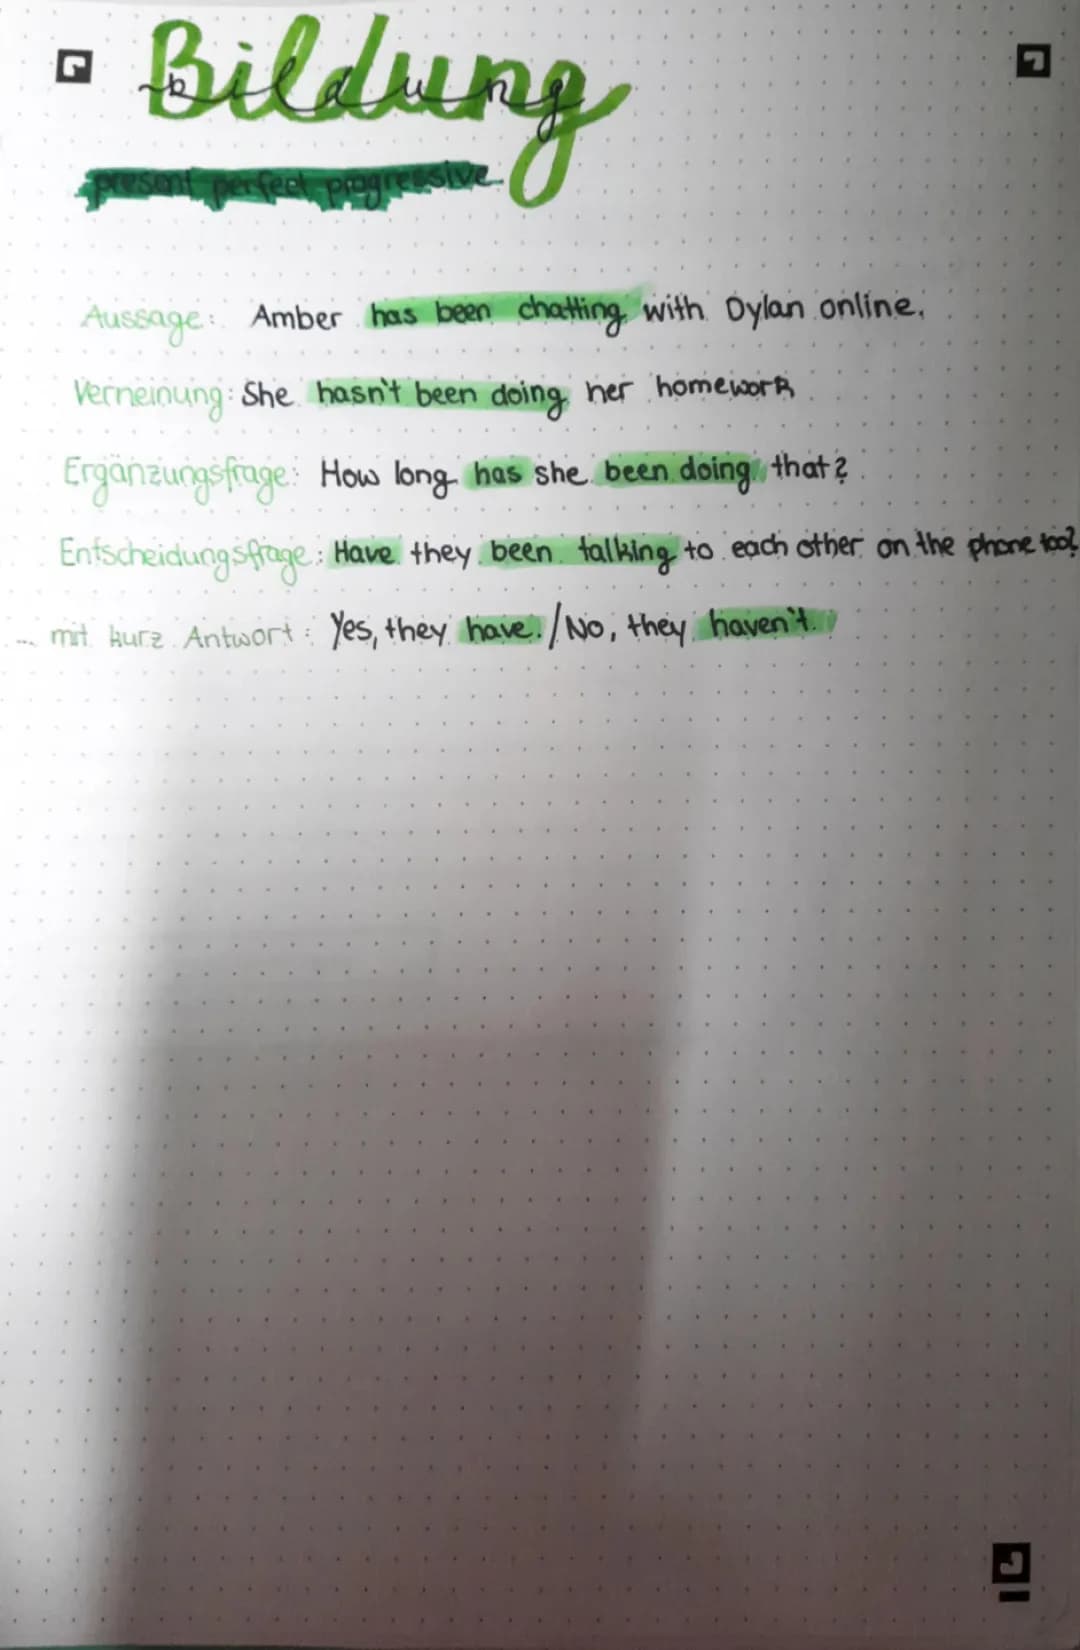 Bildung
present perfect progressive
Aussage: Amber has been chatting with Dylan online.
Verneinung: She hasn't been doing her homework
Ergänzungsfrage: How long has she been doing that?
Entscheidungsfrage: Have they been talking to each other on the phone too?
... mit kurz Antwort: Yes, they have. / No, they haven't.